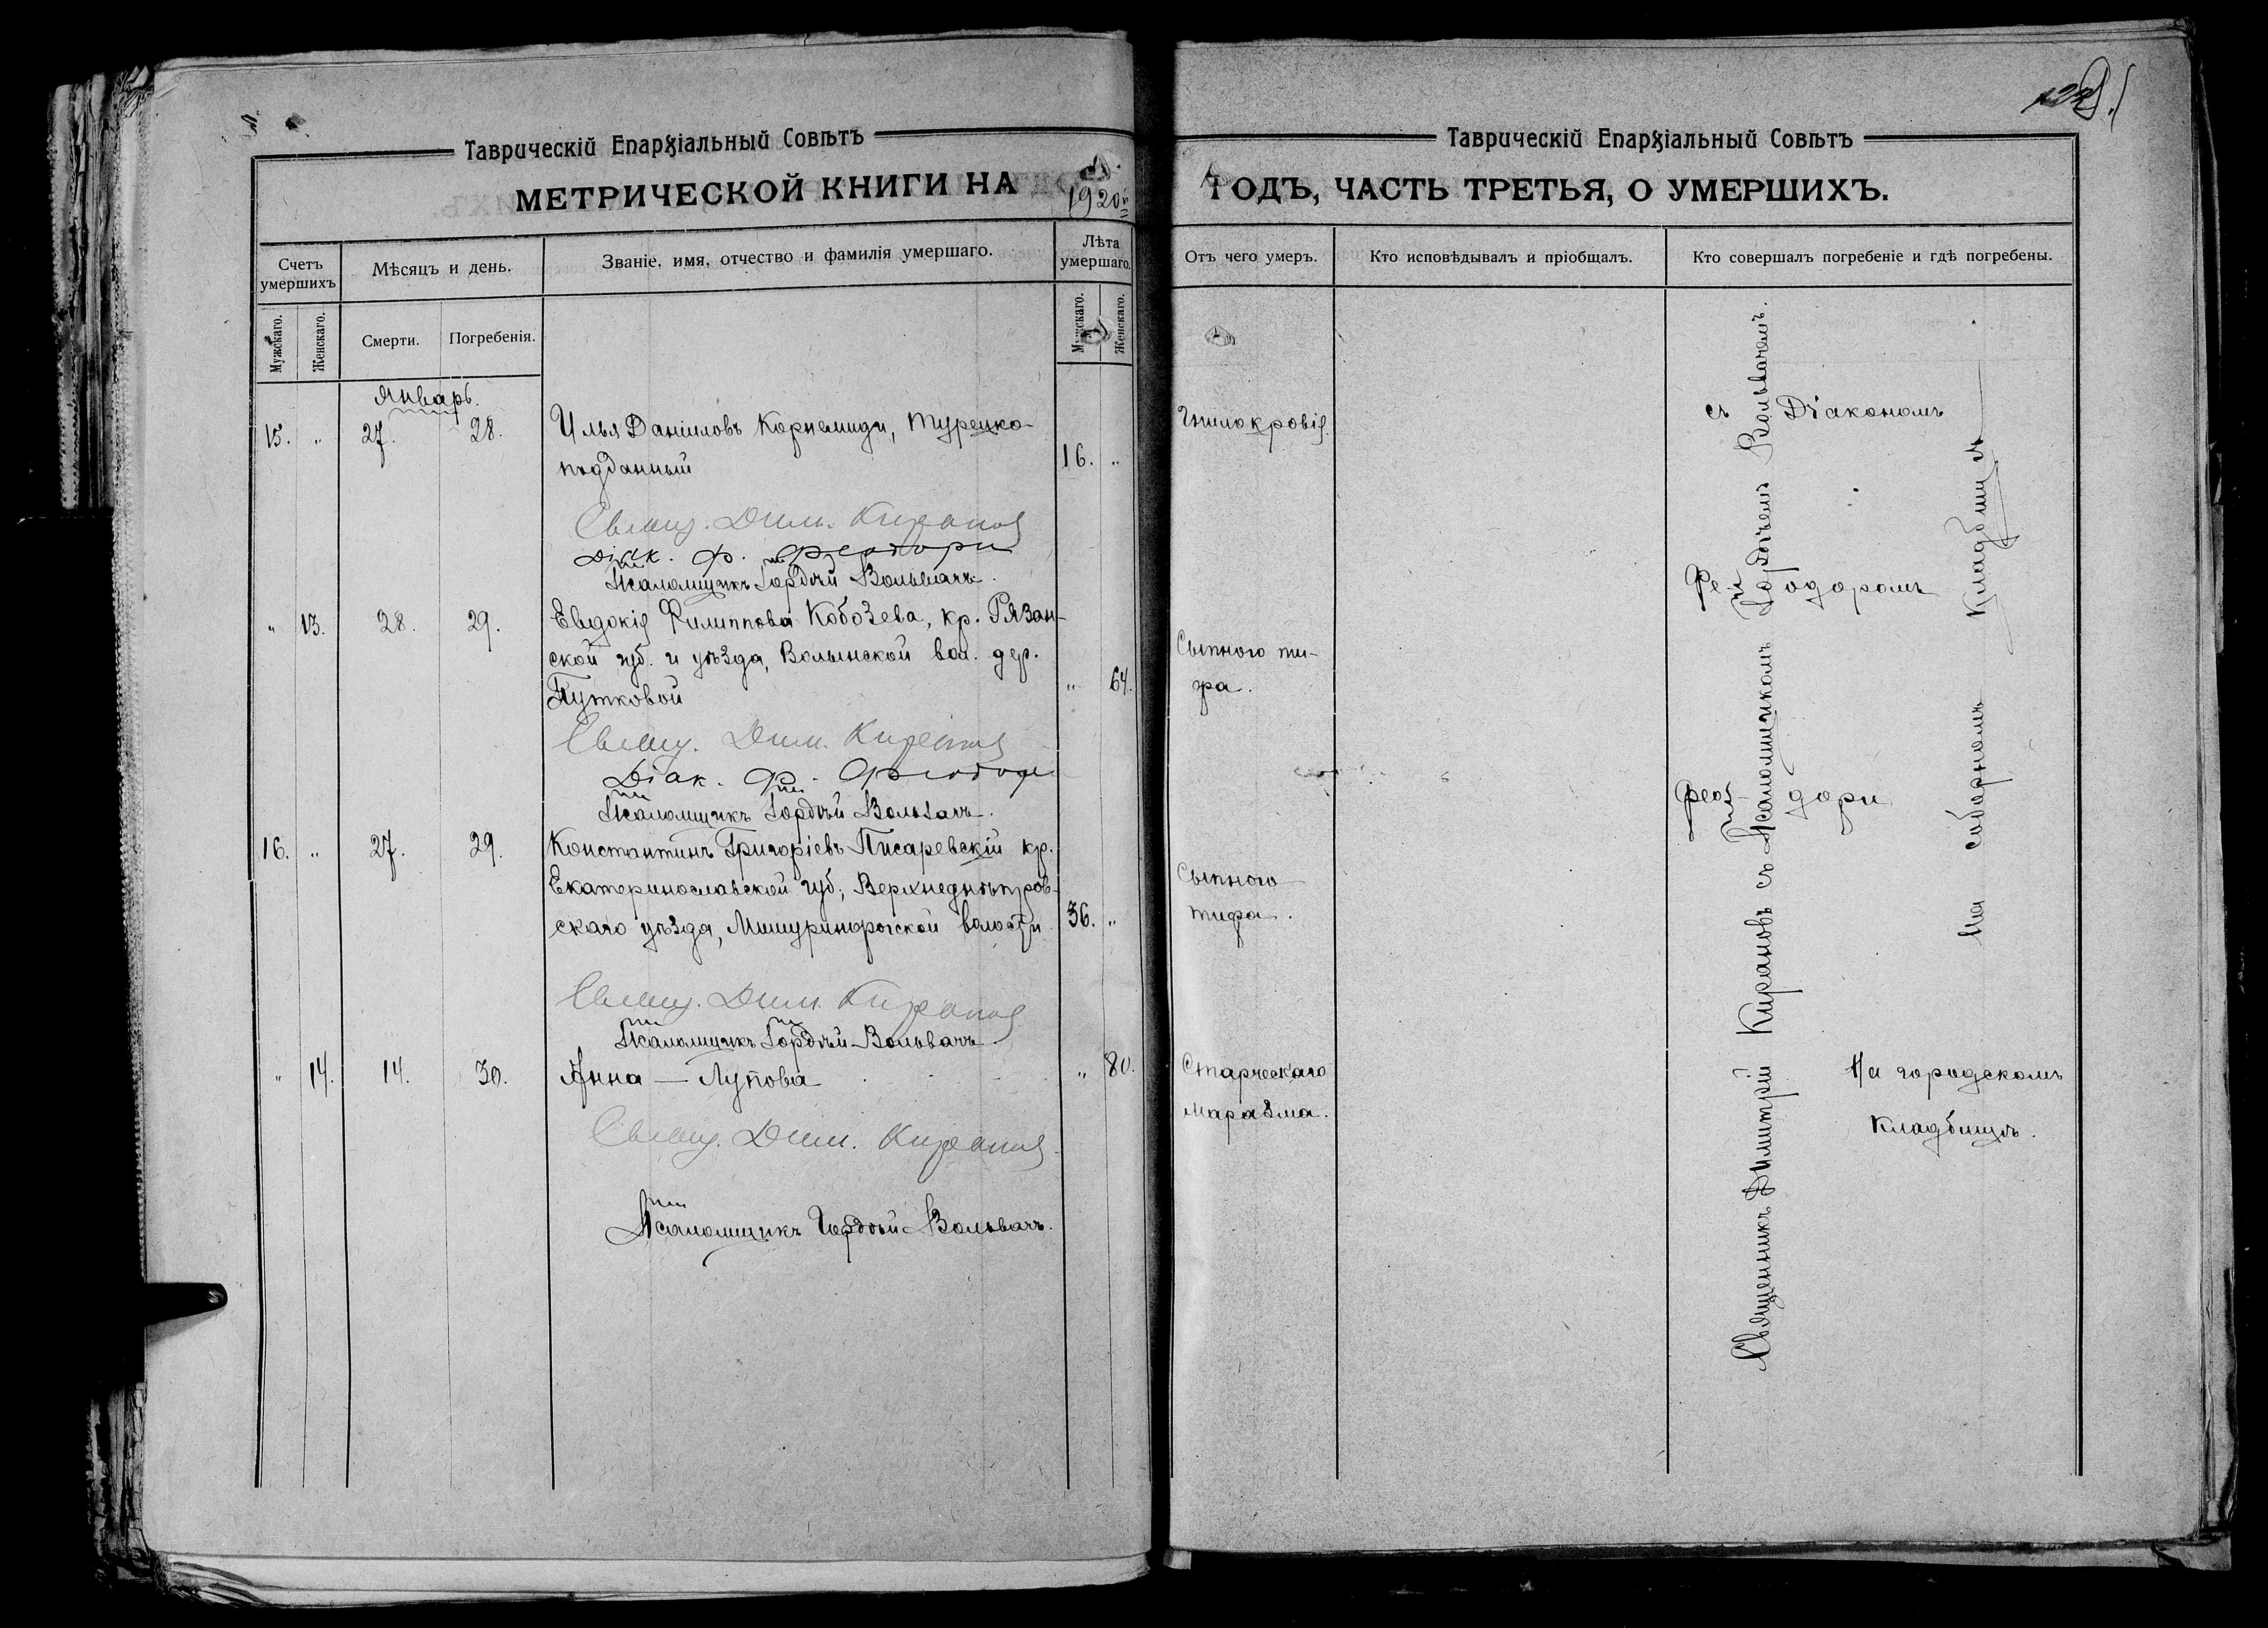 Таврическій Епархіальный Совѣтъ
МЕТРИЧЕСКОЙ КНИГИ НА 1920й
Счетъ умершихъ
Мѣсяцъ и день.
Званіе, имя, отчество и фамилія умершаго.
Лѣта умершаго.
Мужскаго.
Женскаго.
Смерти.
Погребенія.
Мужскаго.
Женскаго.
Январь.
15. „ 27. 28. Илья Даніиловъ Корнемиди, турецко-
подданный 16. „
Свящ. Дим. Кирановъ
Діак. Ф. Феодори
Псаломщикъ Гордѣй Вольвачъ.
„ 13. 28. 29. Евдокія Филиппова Кобозева, кр. Рязан-
ской губ. и уѣзда, Волынской вол. дер.
Путковой „ 64.
Свящ. Дим. Кирановъ
Діак. Ф. Феодори
Псаломщикъ Гордѣй Вольвачъ.
16. „ 27. 29. Константинъ Григоріевъ Писаревскій кр.
Екатеринославской губ., Верхнеднѣпров-
скаго уѣзда, Мишуринорогской волости 36. „
Свящ. Дим. Кирановъ
Псаломщикъ Гордѣй Вольвачъ
„ 14. 14. 30. Анна — Лупова „ 80.
Свящ. Дим. Кирановъ
Псаломщикъ Гордѣй Вольвачъ.
Таврическій Епархіальный Совѣтъ
ГОДЪ, ЧАСТЬ ТРЕТЬЯ, О УМЕРШИХЪ.
Отъ чего умеръ.
Кто исповѣдывалъ и пріобщалъ.
Кто совершалъ погребеніе и гдѣ погребены.
Гнилокровія.
Сыпного ти-
фа.
Сыпного
тифа.
Старческаго
маразма.
Священникъ Димитрій Кирановъ съ Псаломщикомъ Гордѣемъ Вольвачемъ.
съ Діакономъ
Фе- одоромъ
Фео- дори
на соборномъ кладбищѣ
На городскомъ
кладбищѣ.